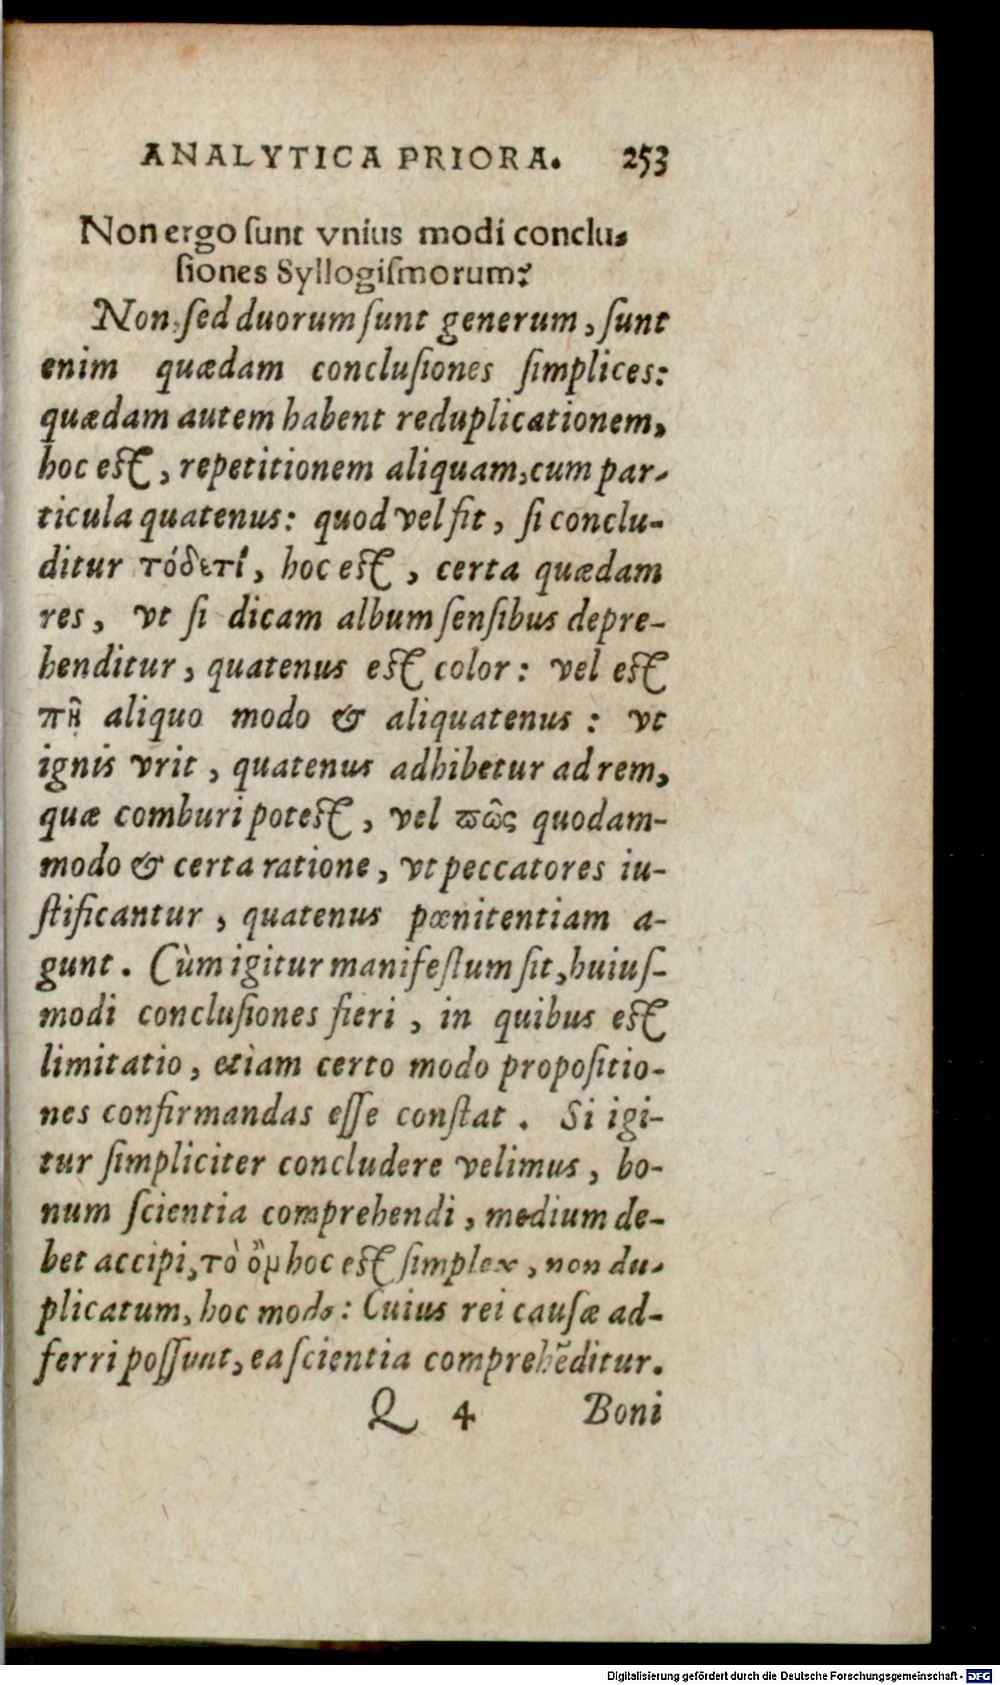 ANALYTICA PRIORA. 253
Non ergo ſunt vnius modi conclu-
ſiones Syllogiſmorum?
Non, ſed duorum ſunt generum, ſunt
enim quædam concluſiones ſimplices:
quædam autem habent reduplicationem,
hoc eſt, repetitionem aliquam, cum par-
ticula quatenus: quod vel fit, ſi conclu-
ditur τόδετὶ, hoc eſt, certa quædam
res, vt ſi dicam album ſenſibus depre-
henditur, quatenus eſt color: vel eſt
πῆ aliquo modo & aliquatenus: vt
ignis vrit, quatenus adhibetur ad rem,
quæ comburi poteſt, vel ϖῶς quodam-
modo & certa ratione, vt peccatores iu-
ſtificantur, quatenus pœnitentiam a-
gunt. Cùm igitur manifeſtum ſit, huiuſ-
modi concluſiones fieri, in quibus eſt
limitatio, etiam certo modo propoſitio-
nes confirmandas eſſe conſtat. Si igi-
tur ſimpliciter concludere velimus, bo-
num ſcientia comprehendi, medium de-
bet accipi, τὸ ὂμ hoc eſt ſimplex, non du-
plicatum, hoc modo: Cuius rei cauſæ ad-
ferri poſſunt, ea ſcientia comprehẽditur.
Q 4 Boni
Digitalisierung gefördert durch die Deutsche Forschungsgemeinschaft - DFG